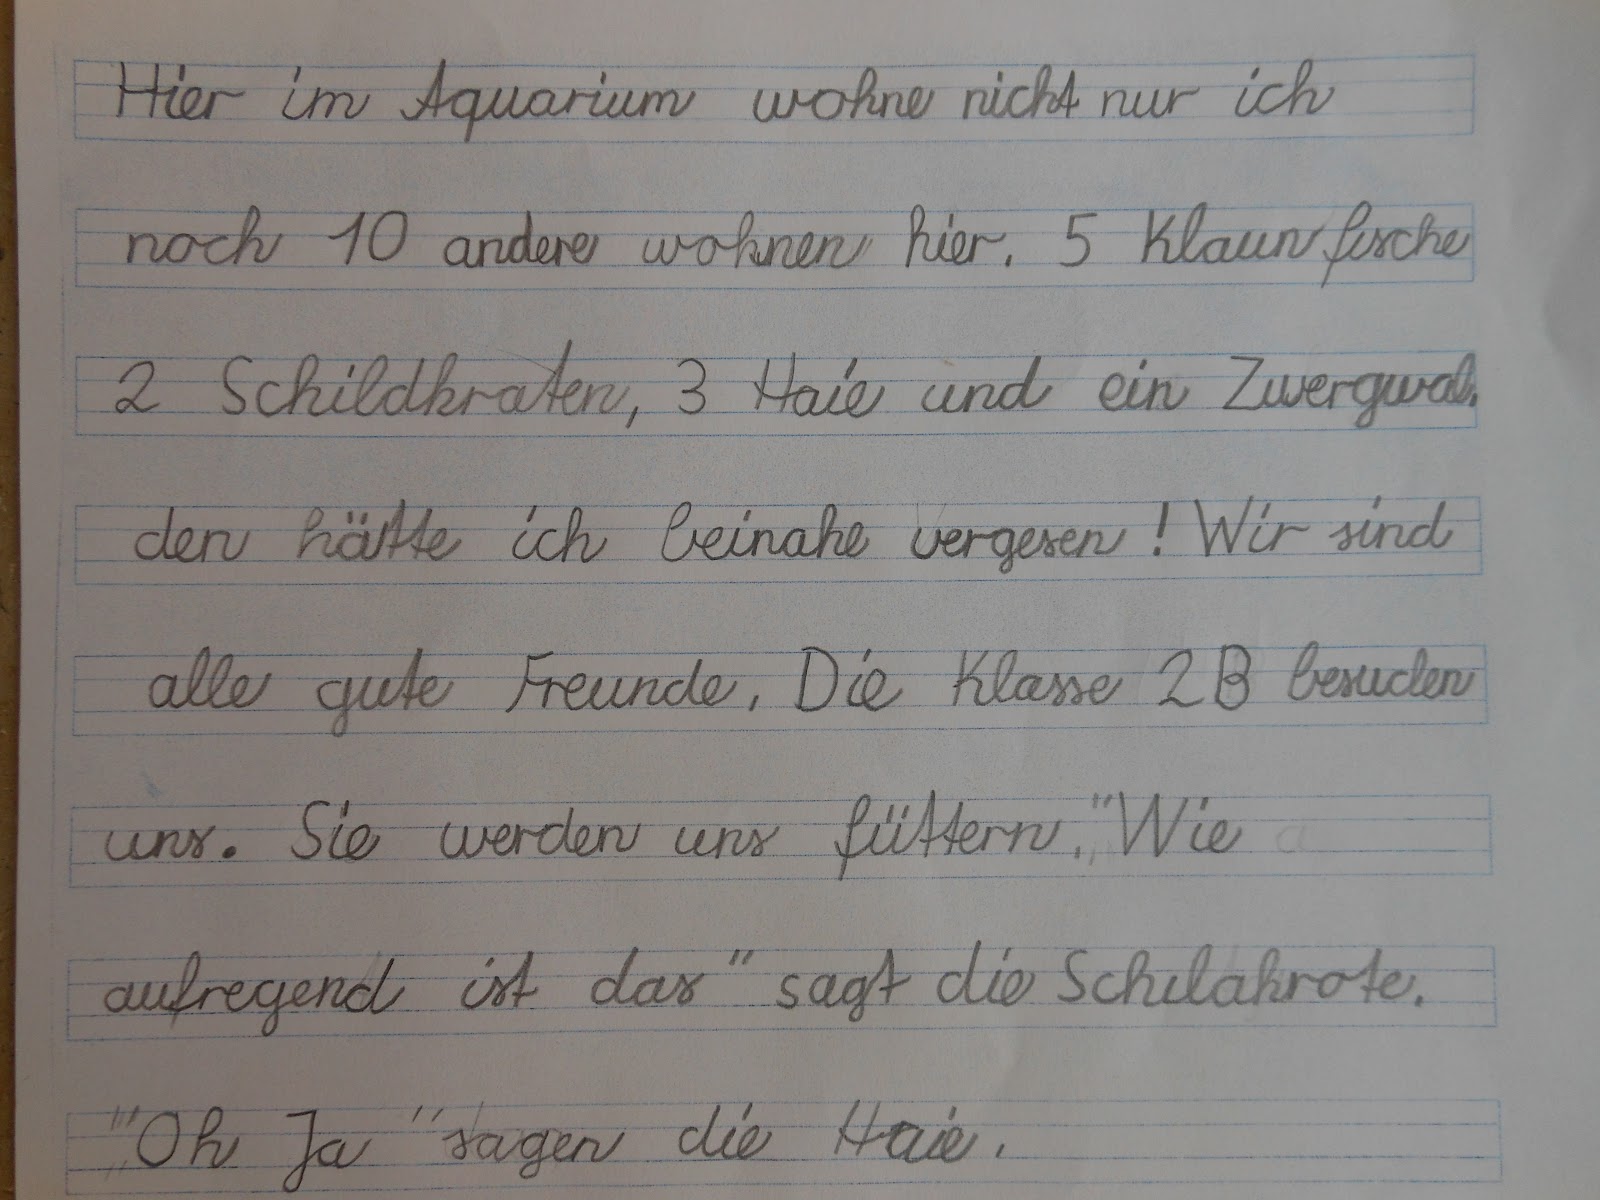 Hier im Aquarium wohne nicht nur ich
noch 10 andere wohnen hier. 5 Klaunfische
2 Schildkraten, 3 Haie und ein Zwergwal.
den hätte ich beinahe vergesen! Wir sind
alle gute Freunde. Die Klasse 2B besuchen
uns. Sie werden uns füttern. "Wie
aufregend ist das" sagt die Schildkrote.
"Oh Ja" sagen die Haie.